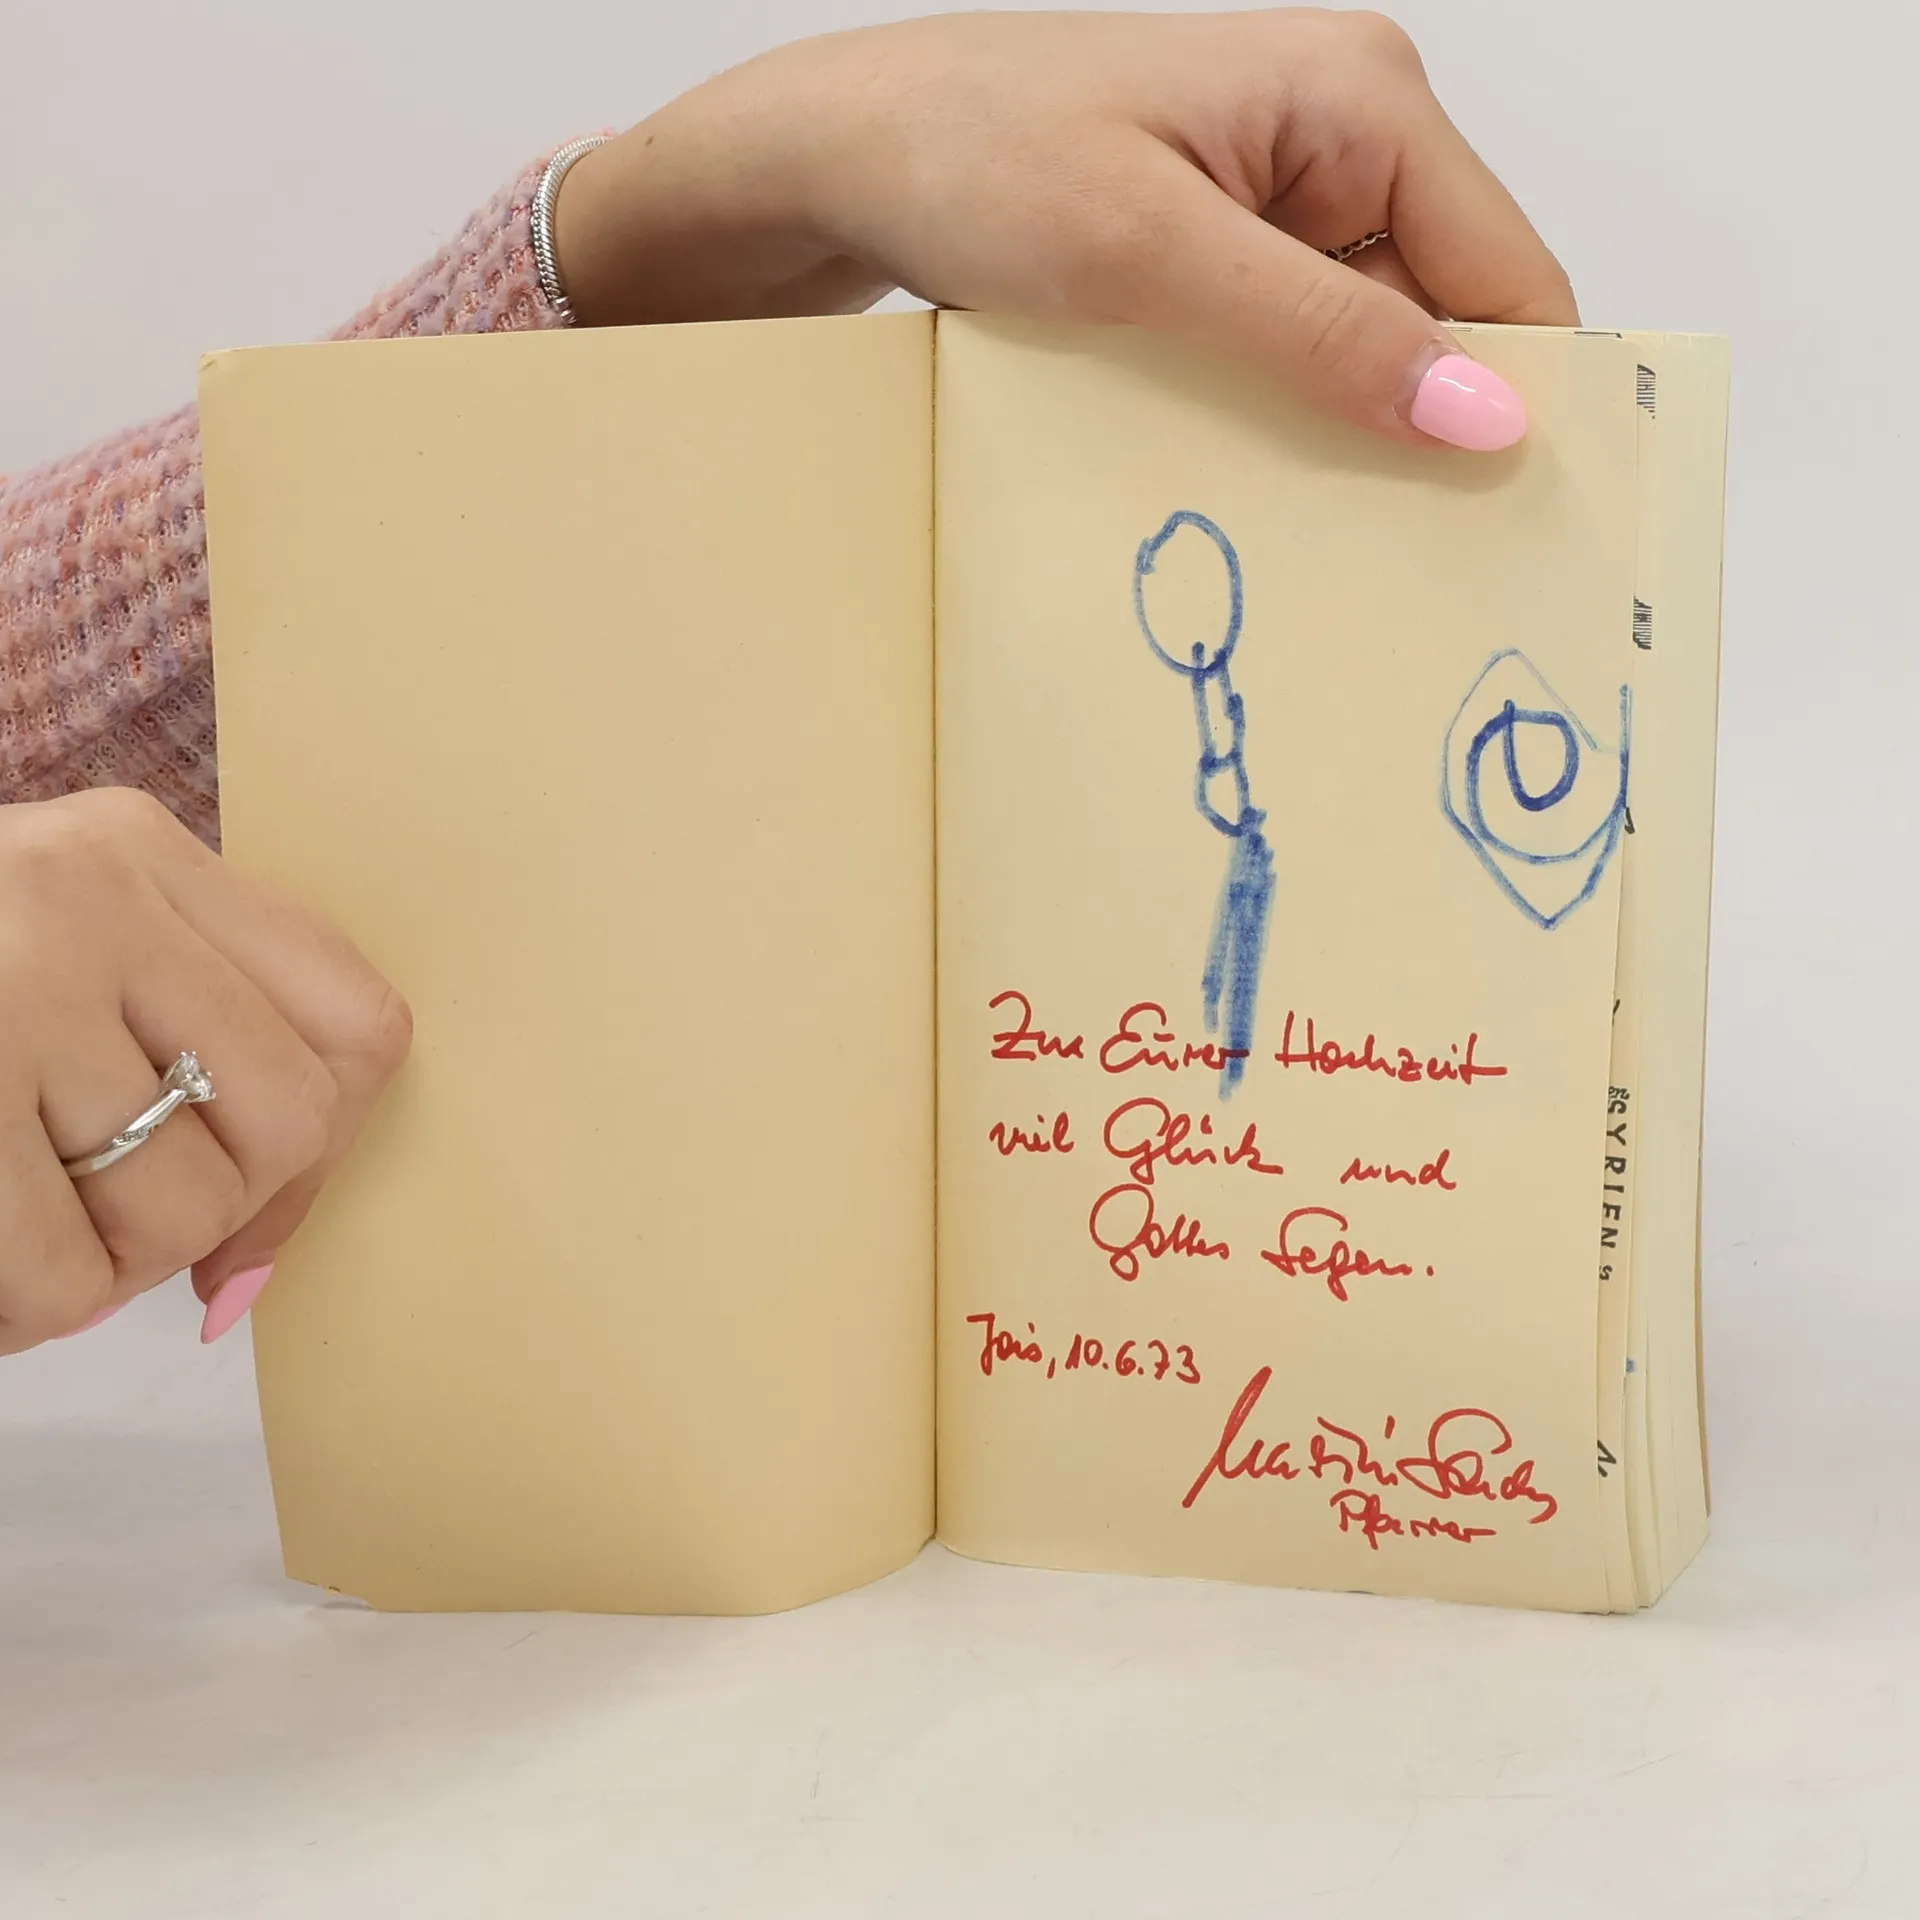 Zu Eurer Hochzeit
viel Glück und
Gottes Segen.
Jois, 10.6.73
Martin
Pfarrer
SYRIENS